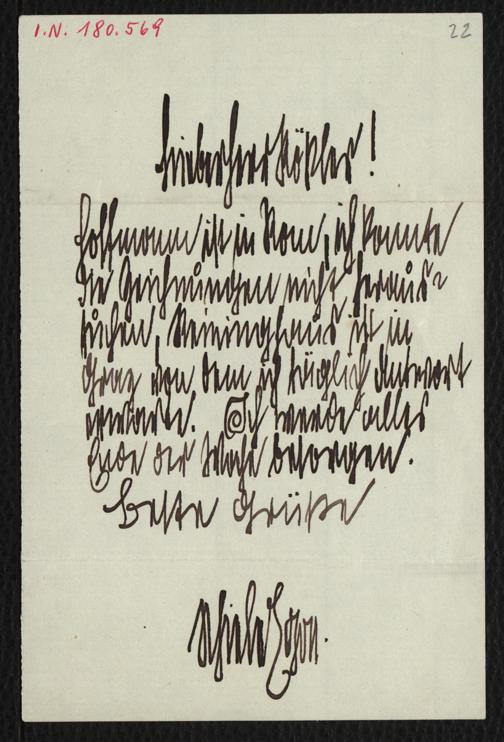 I.N. 180.569
22
Lieber Herr Rößler!
Hoffmann ist in Rom, ich konnte
die Zeichnungen nicht heraus=
suchen, Reininghaus ist in
Graz von dem ich täglich Antwort
erwarte. Ich werde alles
Ende der Woche besorgen.
Beste Grüße
Schiele Egon.